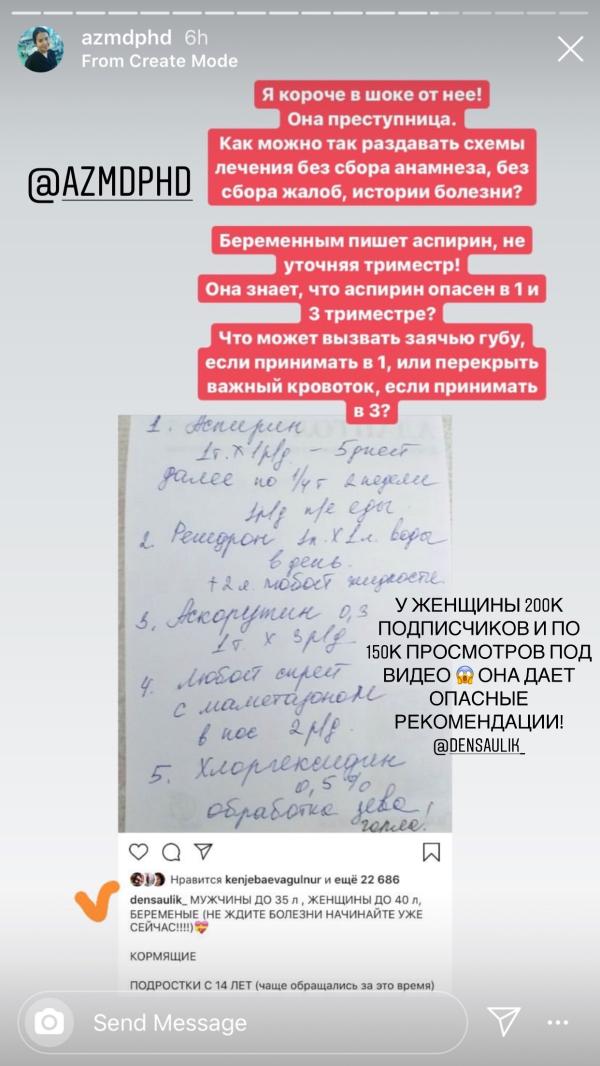 azmdphd 6h
From Create Mode
Я короче в шоке от нее!
Она преступница.
Как можно так раздавать схемы
лечения без сбора анамнеза, без
сбора жалоб, истории болезни?
@AZMDPHD
Беременным пишет аспирин, не
уточняя триместр!
Она знает, что аспирин опасен в 1 и
3 триместре?
Что может вызвать заячью губу,
если принимать в 1, или перекрыть
важный кровоток, если принимать
в 3?
1. Аспирин
1т. х 1р/д – 5 дней
далее по 1/4 т 2 недели
1р/д п/е еды
2. Регидрон 1п. х 1л. воды
в день.
+ 2 л. любой жидкости.
3. Аскорутин 0,3
1т х 3р/д
4. Любой спрей
с маметазоном
в нос 2р/д.
5. Хлоргексидин
0,5%
обработка зева!
горла!
У ЖЕНЩИНЫ 200К
ПОДПИСЧИКОВ И ПО
150К ПРОСМОТРОВ ПОД
ВИДЕО 😱 ОНА ДАЕТ
ОПАСНЫЕ
РЕКОМЕНДАЦИИ!
@DENSAULIK_
Нравится kenjebaevagulnur и ещё 22 686
densaulik_ МУЖЧИНЫ ДО 35 л , ЖЕНЩИНЫ ДО 40 л,
БЕРЕМЕНЫЕ (НЕ ЖДИТЕ БОЛЕЗНИ НАЧИНАЙТЕ УЖЕ
СЕЙЧАС!!!!)💝
КОРМЯЩИЕ
ПОДРОСТКИ С 14 ЛЕТ (чаще обращались за это время)
Send Message